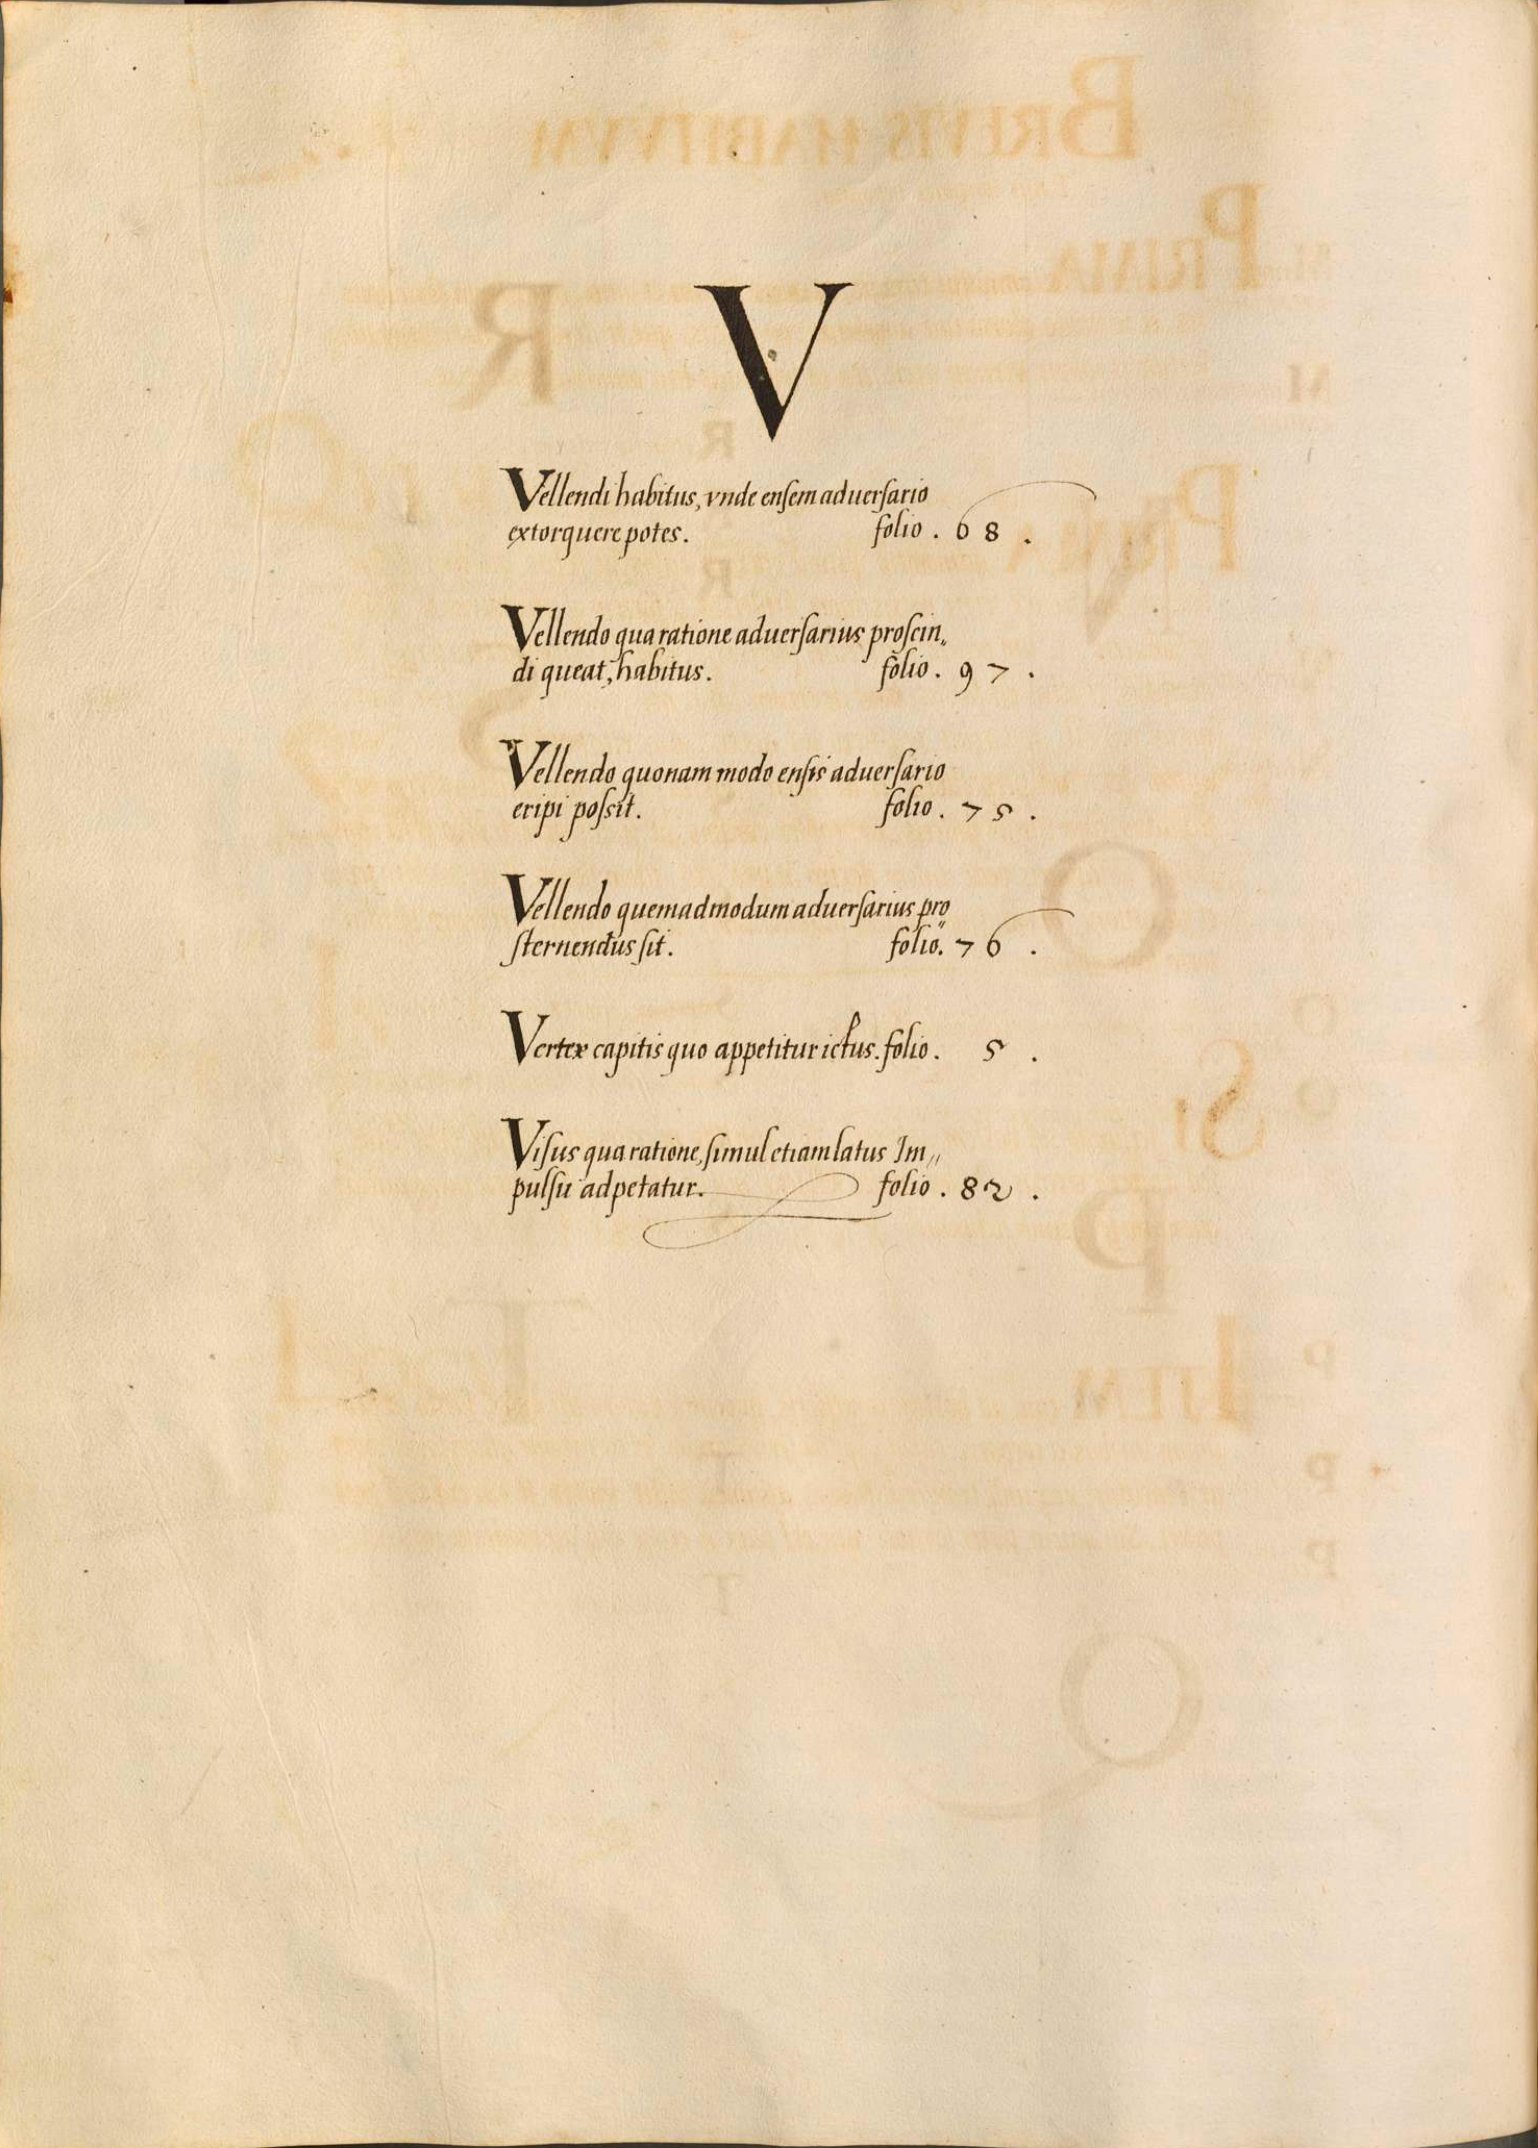 V
Vellendi habitus, vnde ensem aduersario
extorquere potes. folio . 68 .
Vellendo qua ratione aduersarius proscin„
di queat, habitus. folio . 97 .
Vellendo quonam modo ensis aduersario
eripi possit. folio . 75 .
Vellendo quemadmodum aduersarius pro„
sternendus sit. folio . 76 .
Vertex capitis quo appetitur ictus. folio . 5 .
Visus qua ratione, simul etiam latus Im„
pulsu adpetatur. folio . 82 .